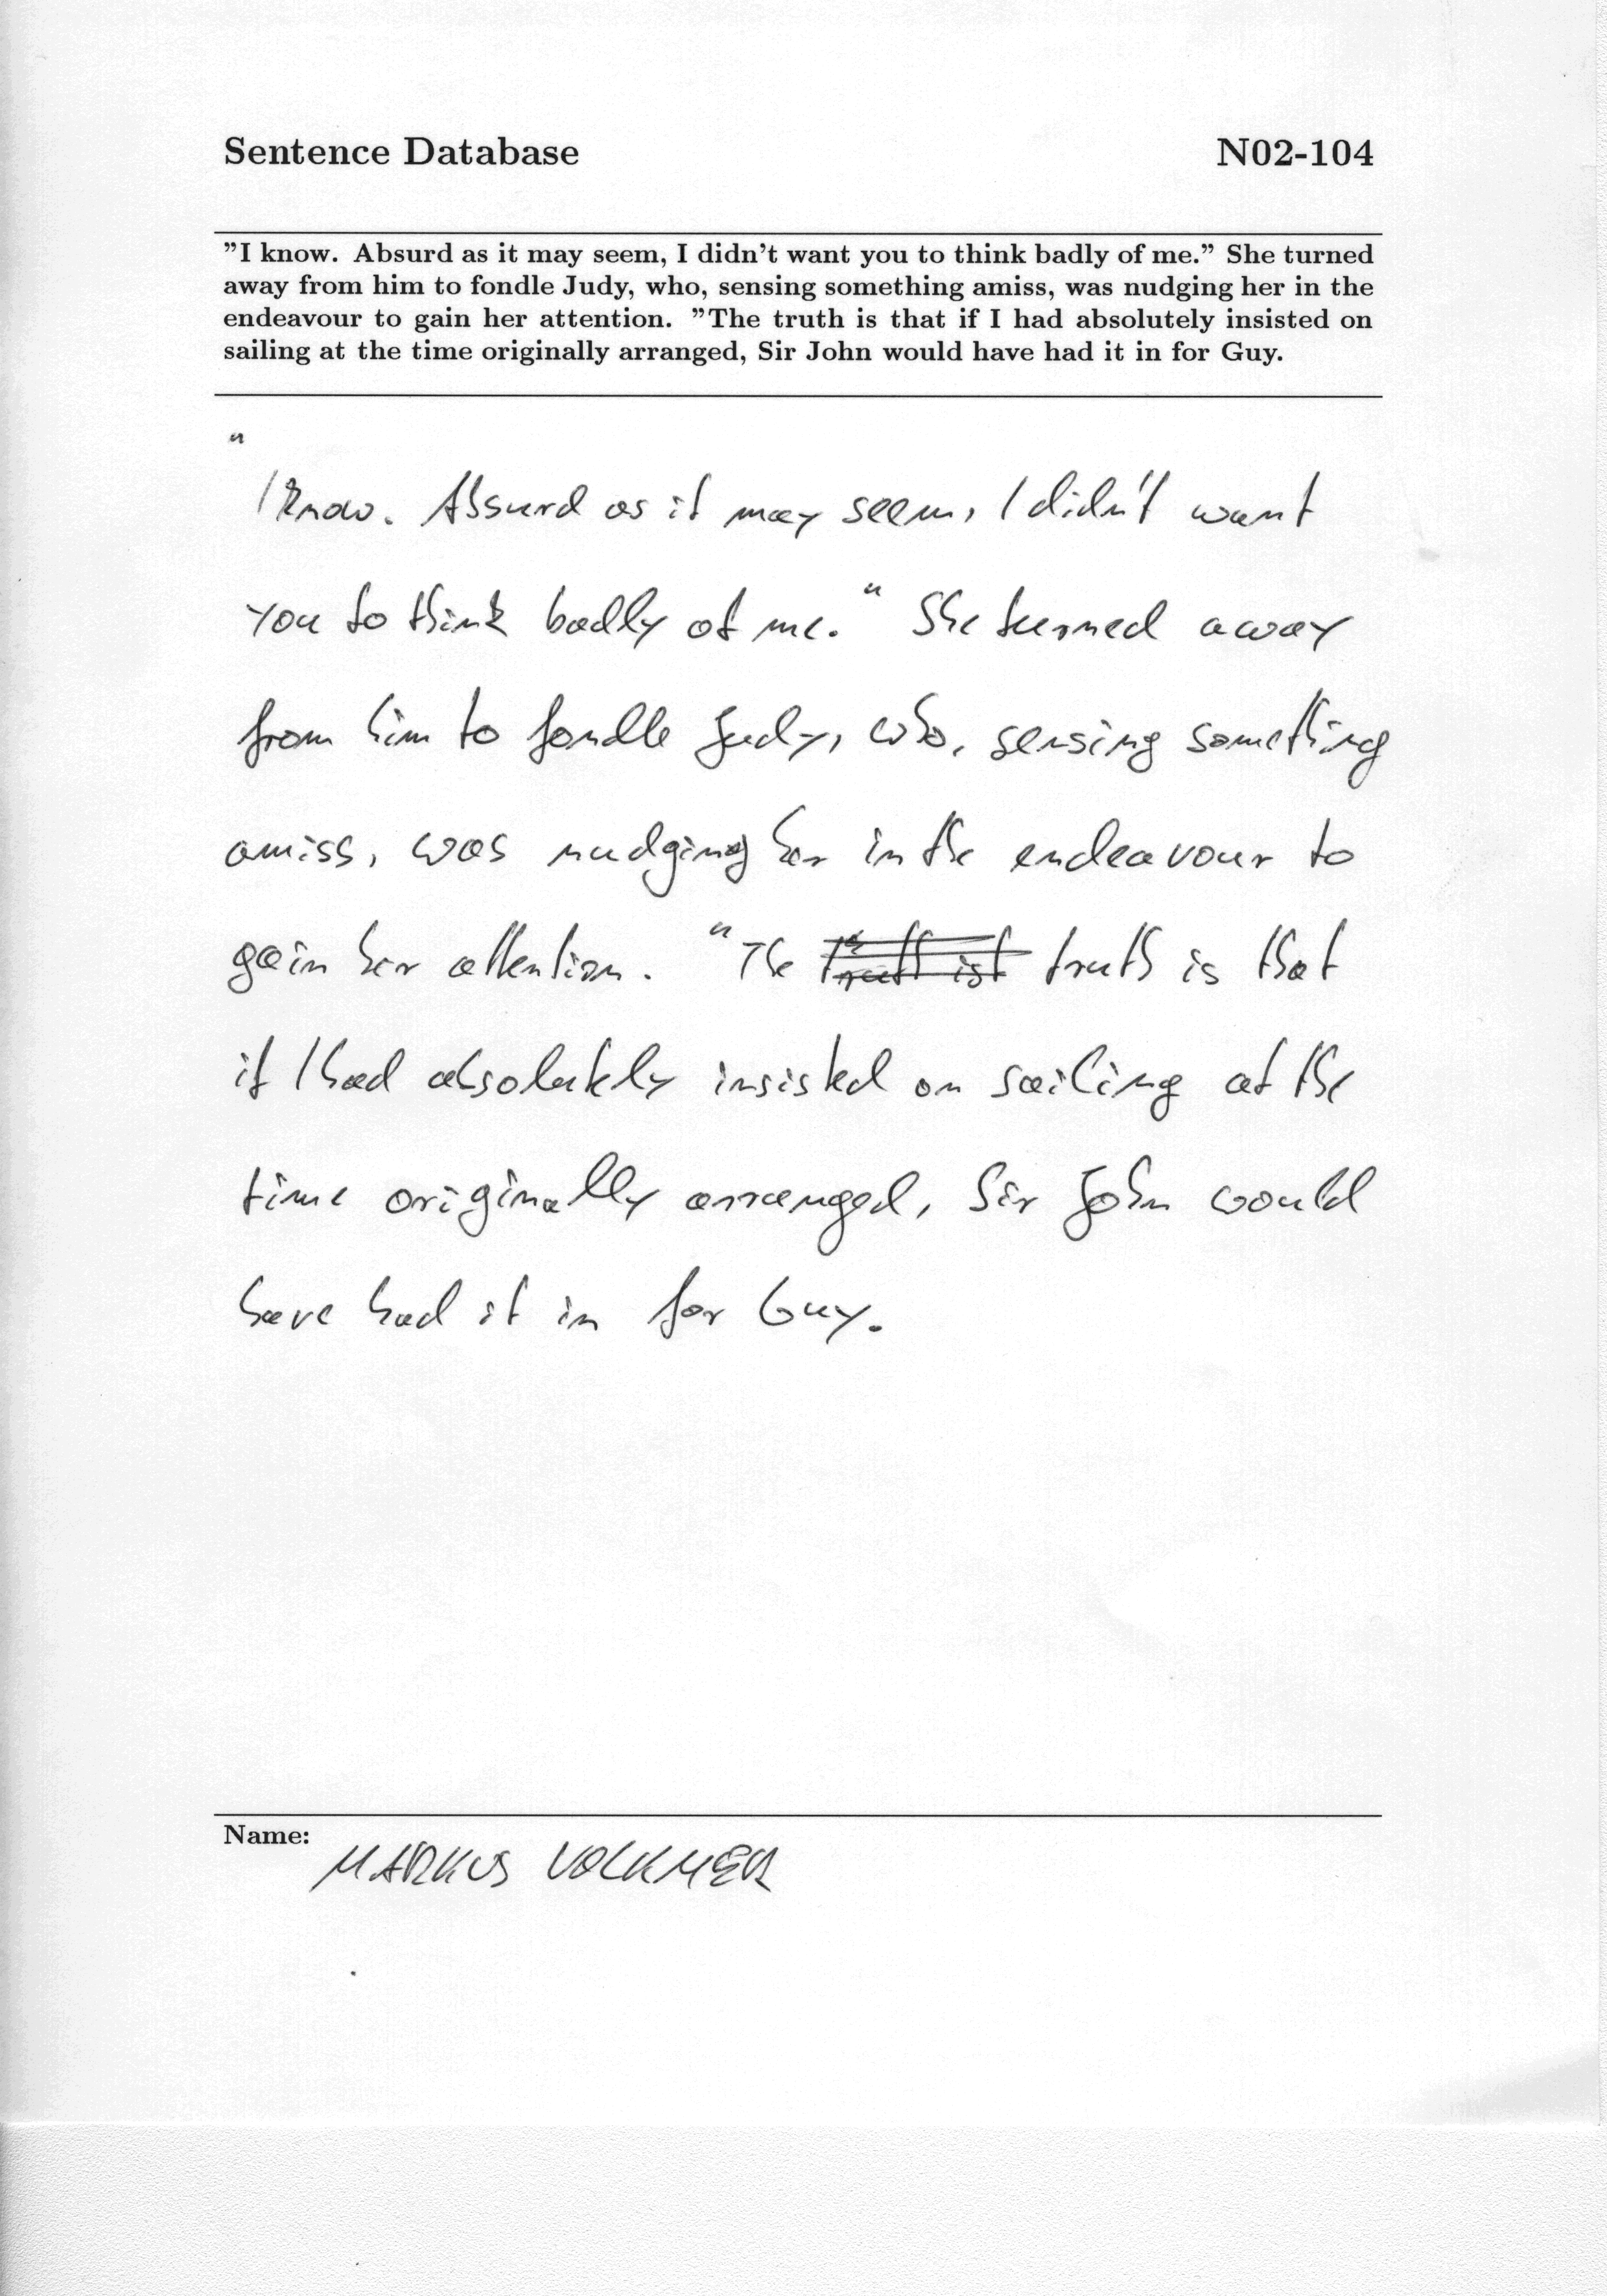 Sentence Database N02-104
"I know. Absurd as it may seem, I didn't want you to think badly of me." She turned
away from him to fondle Judy, who, sensing something amiss, was nudging her in the
endeavour to gain her attention. "The truth is that if I had absolutely insisted on
sailing at the time originally arranged, Sir John would have had it in for Guy.
"
I know. Absurd as it may seem, I didn't want
you to think badly of me." She turned away
from him to fondle Judy, who, sensing something
amiss, was nudging her in the endeavour to
gain her attention. "The truth is that
if I had absolutely insisted on sailing at the
time originally arranged, Sir John would
have had it in for Guy.
Name:
MARKUS VOLKMER